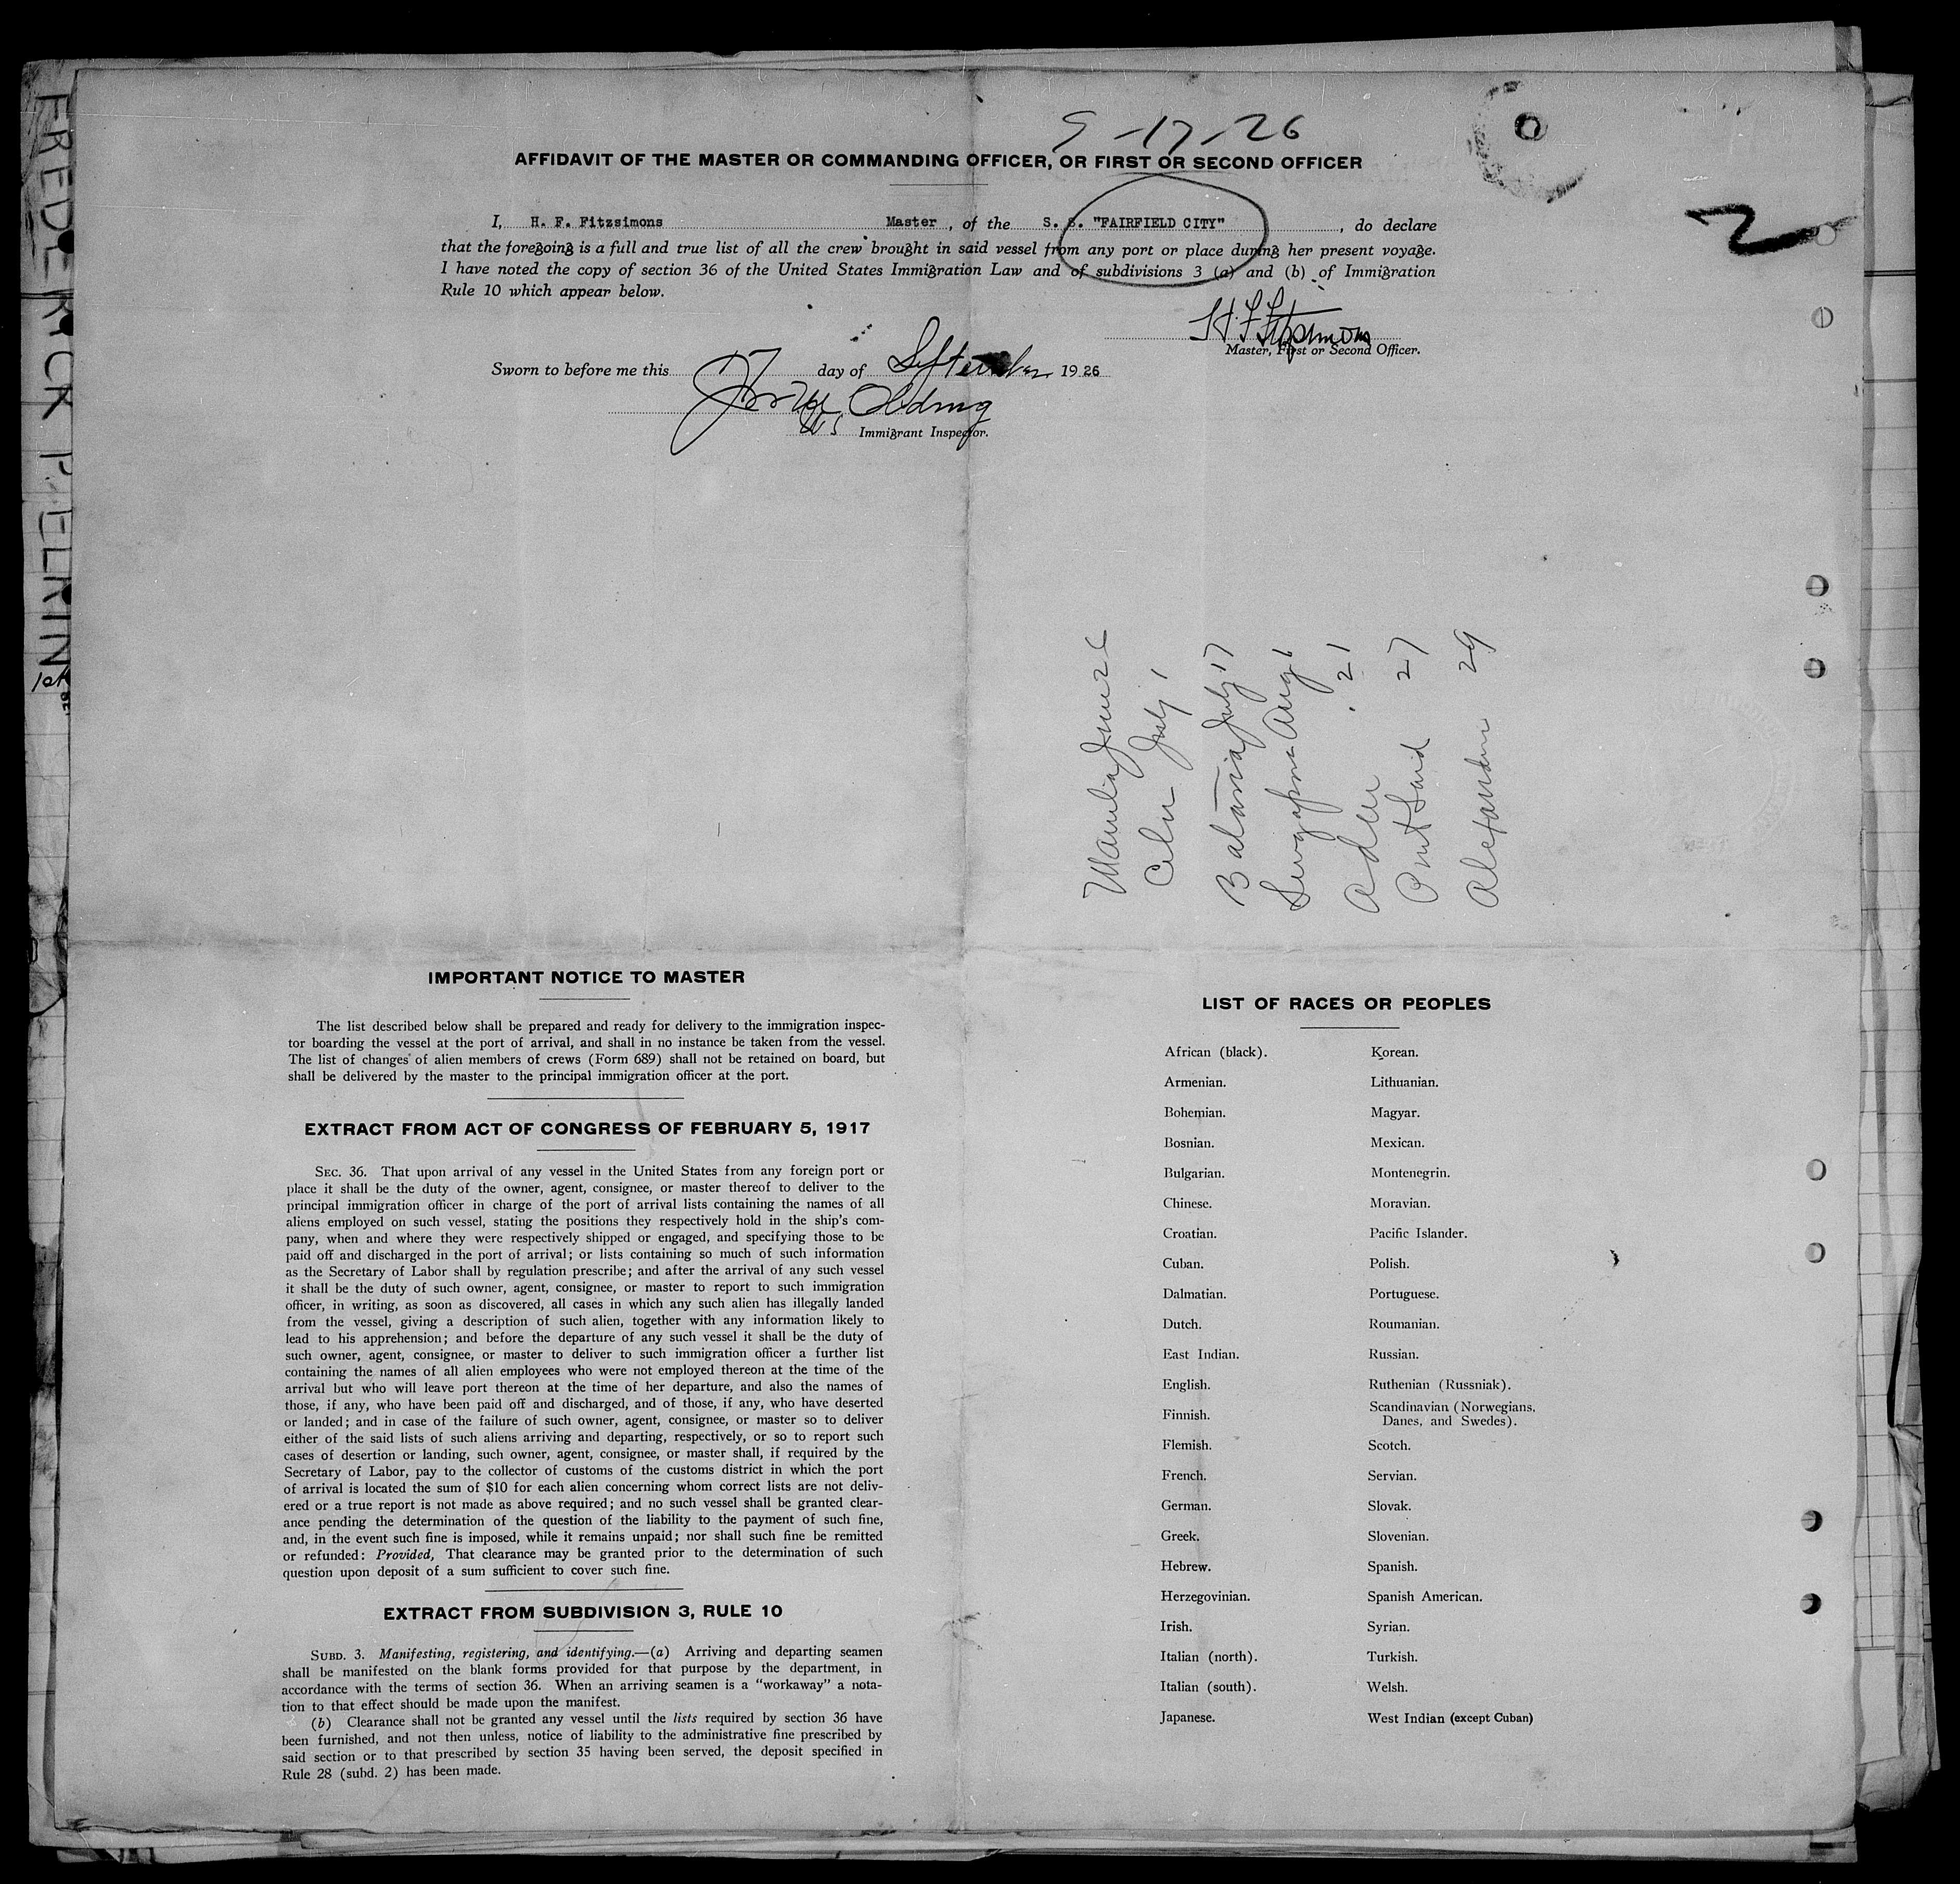 9-17-26
AFFIDAVIT OF THE MASTER OR COMMANDING OFFICER, OR FIRST OR SECOND OFFICER
I, H. F. Fitzsimons Master, of the S. S. "FAIRFIELD CITY", do declare
that the foregoing is a full and true list of all the crew brought in said vessel from any port or place during her present voyage.
I have noted the copy of section 36 of the United States Immigration Law and of subdivisions 3 (a) and (b) of Immigration
Rule 10 which appear below.
2
H F Fitzsimons
Master, First or Second Officer.
Sworn to before me this 17 day of September 1926
Immigrant Inspector.
FREDERICK PELRIN
Manila June
Cebu July 1
Batavia July 17
Singapore Aug 1
Aden 21
Port Said 27
Alexandria 29
IMPORTANT NOTICE TO MASTER
The list described below shall be prepared and ready for delivery to the immigration inspec-
tor boarding the vessel at the port of arrival, and shall in no instance be taken from the vessel.
The list of changes of alien members of crews (Form 689) shall not be retained on board, but
shall be delivered by the master to the principal immigration officer at the port.
EXTRACT FROM ACT OF CONGRESS OF FEBRUARY 5, 1917
SEC. 36. That upon arrival of any vessel in the United States from any foreign port or
place it shall be the duty of the owner, agent, consignee, or master thereof to deliver to the
principal immigration officer in charge of the port of arrival lists containing the names of all
aliens employed on such vessel, stating the positions they respectively hold in the ship's com-
pany, when and where they were respectively shipped or engaged, and specifying those to be
paid off and discharged in the port of arrival; or lists containing so much of such information
as the Secretary of Labor shall by regulation prescribe; and after the arrival of any such vessel
it shall be the duty of such owner, agent, consignee, or master to report to such immigration
officer, in writing, as soon as discovered, all cases in which any such alien has illegally landed
from the vessel, giving a description of such alien, together with any information likely to
lead to his apprehension; and before the departure of any such vessel it shall be the duty of
such owner, agent, consignee, or master to deliver to such immigration officer a further list
containing the names of all alien employees who were not employed thereon at the time of the
arrival but who will leave port thereon at the time of her departure, and also the names of
those, if any, who have been paid off and discharged, and of those, if any, who have deserted
or landed; and in case of the failure of such owner, agent, consignee, or master so to deliver
either of the said lists of such aliens arriving and departing, respectively, or so to report such
cases of desertion or landing, such owner, agent, consignee, or master shall, if required by the
Secretary of Labor, pay to the collector of customs of the customs district in which the port
of arrival is located the sum of $10 for each alien concerning whom correct lists are not deliv-
ered or a true report is not made as above required; and no such vessel shall be granted clear-
ance pending the determination of the question of the liability to the payment of such fine,
and, in the event such fine is imposed, while it remains unpaid; nor shall such fine be remitted
or refunded: Provided, That clearance may be granted prior to the determination of such
question upon deposit of a sum sufficient to cover such fine.
EXTRACT FROM SUBDIVISION 3, RULE 10
SUBD. 3. Manifesting, registering, and identifying.—(a) Arriving and departing seamen
shall be manifested on the blank forms provided for that purpose by the department, in
accordance with the terms of section 36. When an arriving seamen is a "workaway" a nota-
tion to that effect should be made upon the manifest.
(b) Clearance shall not be granted any vessel until the lists required by section 36 have
been furnished, and not then unless, notice of liability to the administrative fine prescribed by
said section or to that prescribed by section 35 having been served, the deposit specified in
Rule 28 (subd. 2) has been made.
LIST OF RACES OR PEOPLES
African (black).
Armenian.
Bohemian.
Bosnian.
Bulgarian.
Chinese.
Croatian.
Cuban.
Dalmatian.
Dutch.
East Indian.
English.
Finnish.
Flemish.
French.
German.
Greek.
Hebrew.
Herzegovinian.
Irish.
Italian (north).
Italian (south).
Japanese.
Korean.
Lithuanian.
Magyar.
Mexican.
Montenegrin.
Moravian.
Pacific Islander.
Polish.
Portuguese.
Roumanian.
Russian.
Ruthenian (Russniak).
Scandinavian (Norwegians,
Danes, and Swedes).
Scotch.
Servian.
Slovak.
Slovenian.
Spanish.
Spanish American.
Syrian.
Turkish.
Welsh.
West Indian (except Cuban)